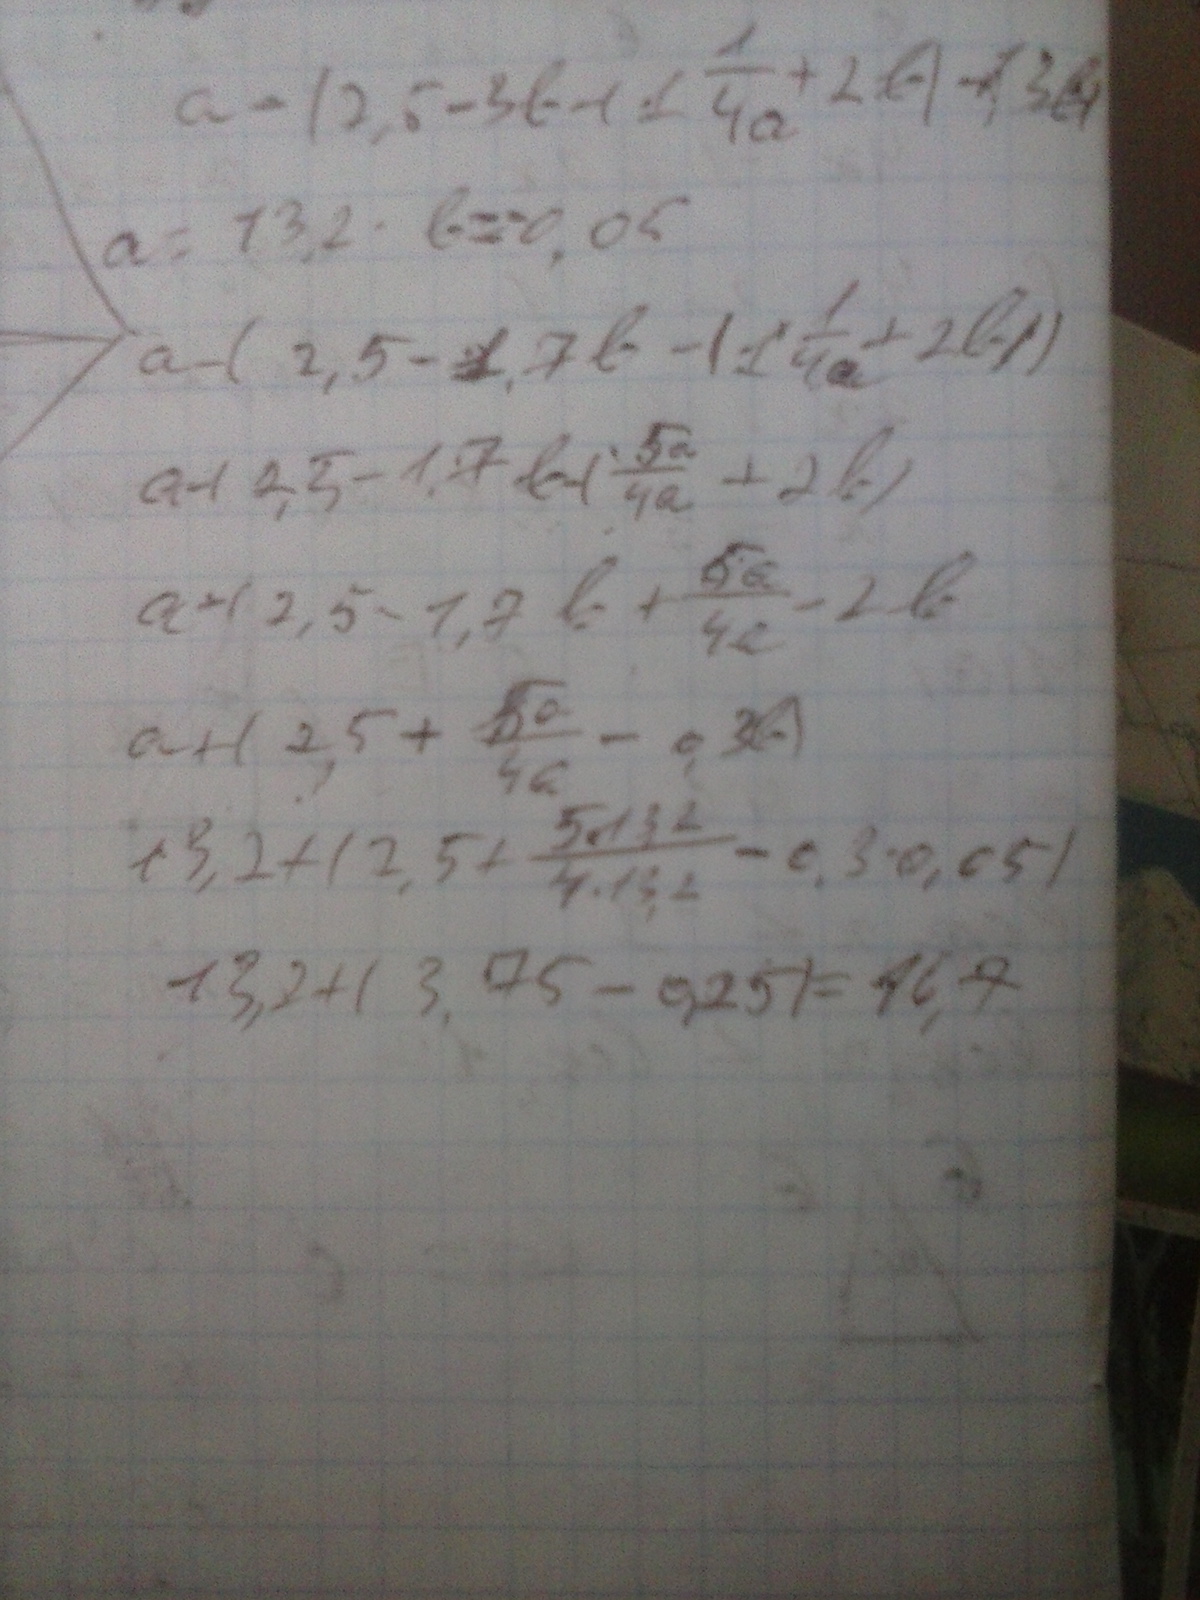 a - (2,5 - 3b - (1 1/4a + 2b) + 1,3b)
a = 13,2. b = -0,05
a - ( 2,5 - 1,7b - (1 1/4a + 2b))
a - ( 2,5 - 1,7b - ( 5a/4a + 2b)
a + ( 2,5 - 1,7b + 5a/4a - 2b
a + ( 2,5 + 5a/4a - 0,3b)
13,2 + ( 2,5 + 5·13,2/4·13,2 - 0,3·0,05)
13,2 + ( 3,75 - 0,25) = 16,7